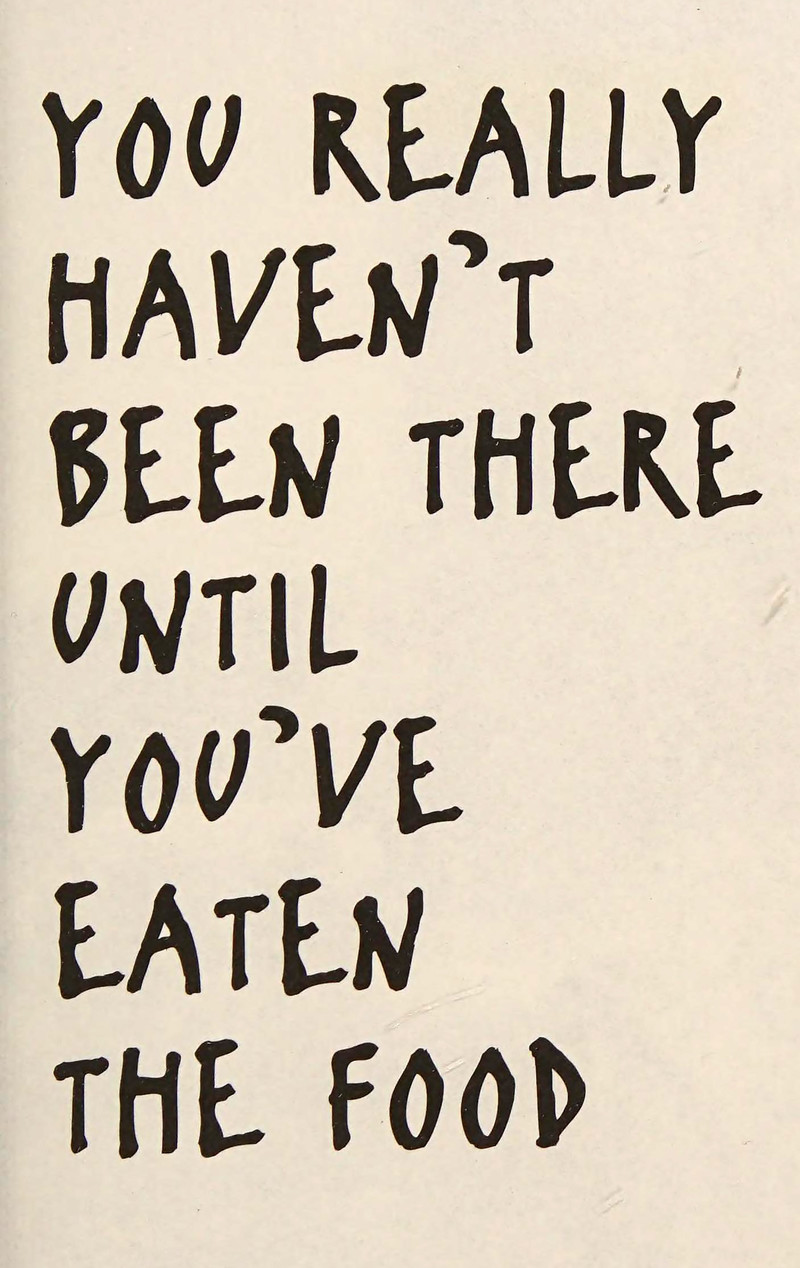 YOU REALLY
HAVEN'T
BEEN THERE
UNTIL
YOU'VE
EATEN
THE FOOD